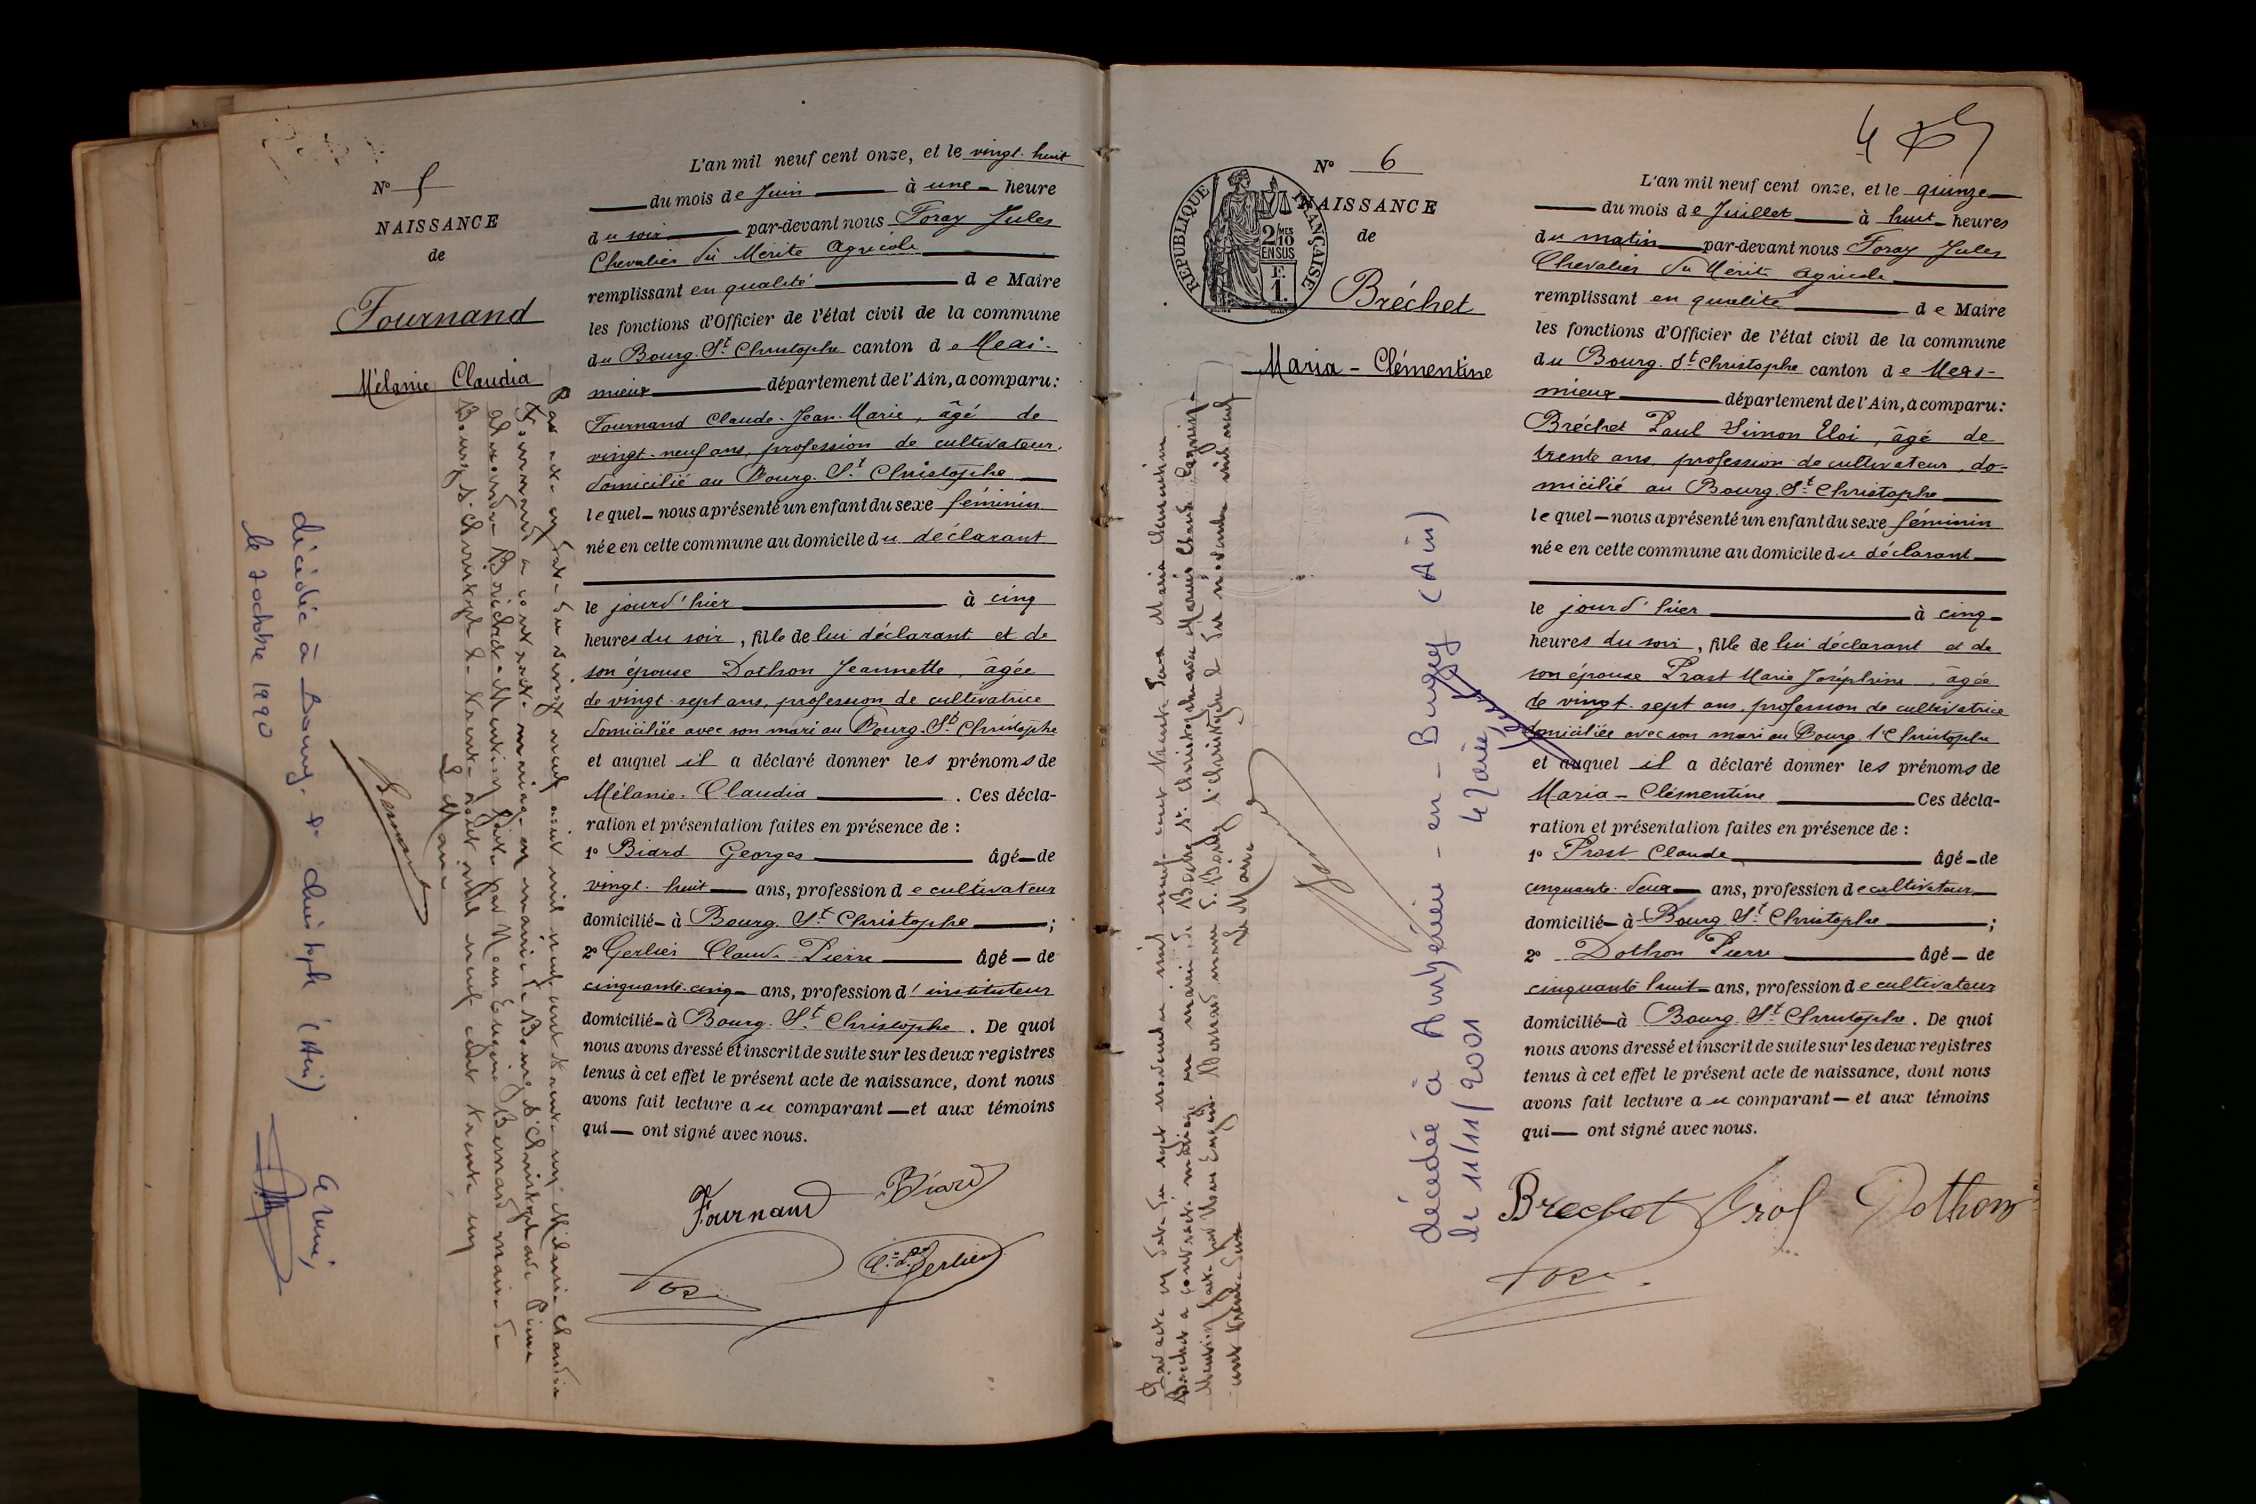 N° 5
NAISSANCE
de
Fournand
Mélanie Claudia
L'an mil neuf cent onze, et le vingt-huit
du mois de Juin à une heure
du soir par-devant nous Foray Jules
Chevalier du Mérite Agricole
remplissant en qualité de Maire
les fonctions d'Officier de l'état civil de la commune
du Bourg-St Christophe canton de Mexi-
mieux département de l'Ain, a comparu:
Fournand Claude-Jean-Marie, âgé de
vingt-neuf ans, profession de cultivateur,
domicilié au Bourg-St Christophe
lequel nous a présenté un enfant du sexe féminin
née en cette commune au domicile du déclarant
le jourd'hier à cinq
heures du soir, fille de lui déclarant et de
son épouse Dothon Jeannette, âgée
de vingt-sept ans, profession de cultivatrice
domiciliée avec son mari au Bourg-St Christophe
et auquel il a déclaré donner les prénoms de
Mélanie-Claudia. Ces décla-
ration et présentation faites en présence de :
1° Biard Georges âgé de
vingt-huit ans, profession de cultivateur
domicilié à Bourg-St Christophe ;
2° Gerlier Claude-Pierre âgé de
cinquante-cinq ans, profession d'instituteur
domicilié à Bourg-St Christophe. De quoi
nous avons dressé et inscrit de suite sur les deux registres
tenus à cet effet le présent acte de naissance, dont nous
avons fait lecture au comparant et aux témoins
qui ont signé avec nous.
Fournand Biard
Gerlier
Par acte en date du vingt neuf août mil neuf cent trente un, Mélanie Claudia
Fournand a contracté mariage en mairie de Bourg St Christophe avec Pierre
Mention faite par Nous Eugène Bernard maire de
Bourg St Christophe le trente août mil neuf cent trente un
Le Maire
Bernard
décédée à Bourg-St Christophe (Ain)
le 2 octobre 1990
N° 6
NAISSANCE
de
Bréchet
Maria-Clémentine
REPUBLIQUE FRANÇAISE
2/10MES
EN SUS
1 F.
L'an mil neuf cent onze, et le quinze
du mois de Juillet à huit heures
du matin par-devant nous Foray Jules
Chevalier du Mérite Agricole
remplissant en qualité de Maire
les fonctions d'Officier de l'état civil de la commune
du Bourg-St Christophe canton de Mexi-
mieux département de l'Ain, a comparu:
Bréchet Paul Simon Eloi, âgé de
trente ans, profession de cultivateur, do-
micilié au Bourg-St Christophe
lequel nous a présenté un enfant du sexe féminin
née en cette commune au domicile du déclarant
le jourd'hier à cinq
heures du soir, fille de lui déclarant et de
son épouse Prost Marie Joséphine, âgée
de vingt-sept ans, profession de cultivatrice
domiciliée avec son mari au Bourg-St Christophe
et auquel il a déclaré donner les prénoms de
Maria-Clémentine Ces décla-
ration et présentation faites en présence de :
1° Prost Claude âgé de
cinquante-deux ans, profession de cultivateur
domicilié à Bourg-St Christophe ;
2° Dothon Pierre âgé de
cinquante huit ans, profession de cultivateur
domicilié à Bourg-St Christophe. De quoi
nous avons dressé et inscrit de suite sur les deux registres
tenus à cet effet le présent acte de naissance, dont nous
avons fait lecture au comparant et aux témoins
qui ont signé avec nous.
Brechet Prost Dothon
Le Maire
décédée à Ambérieu-en-Bugey (Ain)
le 11/11/2001